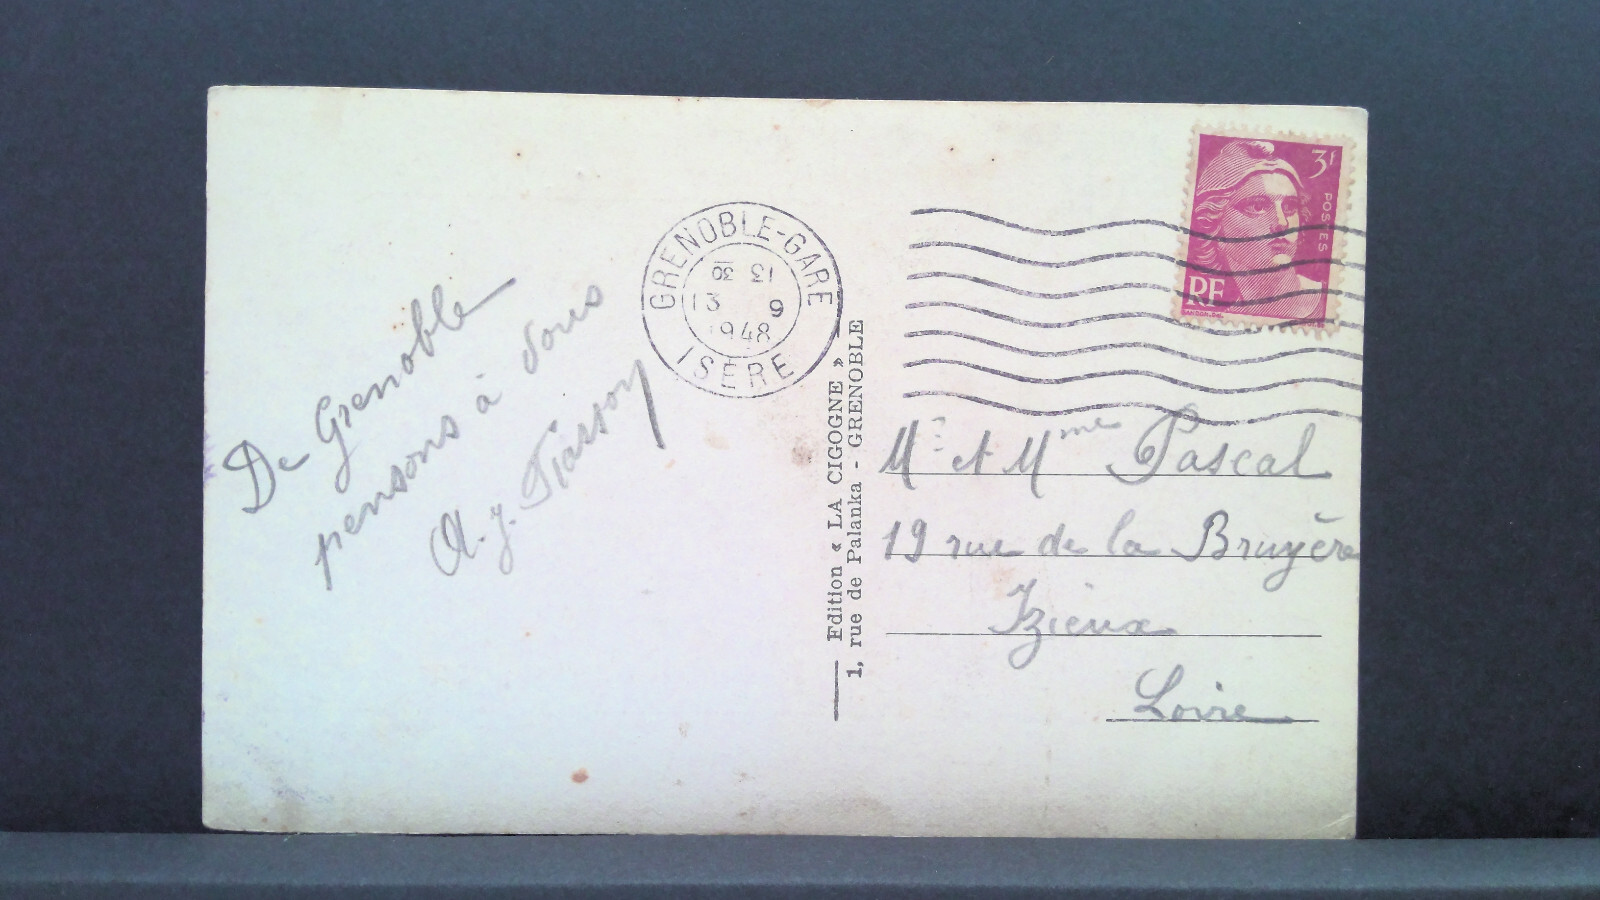 De Grenoble
pensons à vous
A. y. Fiasson
GRENOBLE-GARE
13 30
13 9
1948
ISÈRE
Edition « LA CIGOGNE »
1, rue de Palanka - GRENOBLE
3f
POSTES
RF
GANDON. DEL.
Mr et Mme Pascal
19 rue de la Bruyère
Izieux
Loire